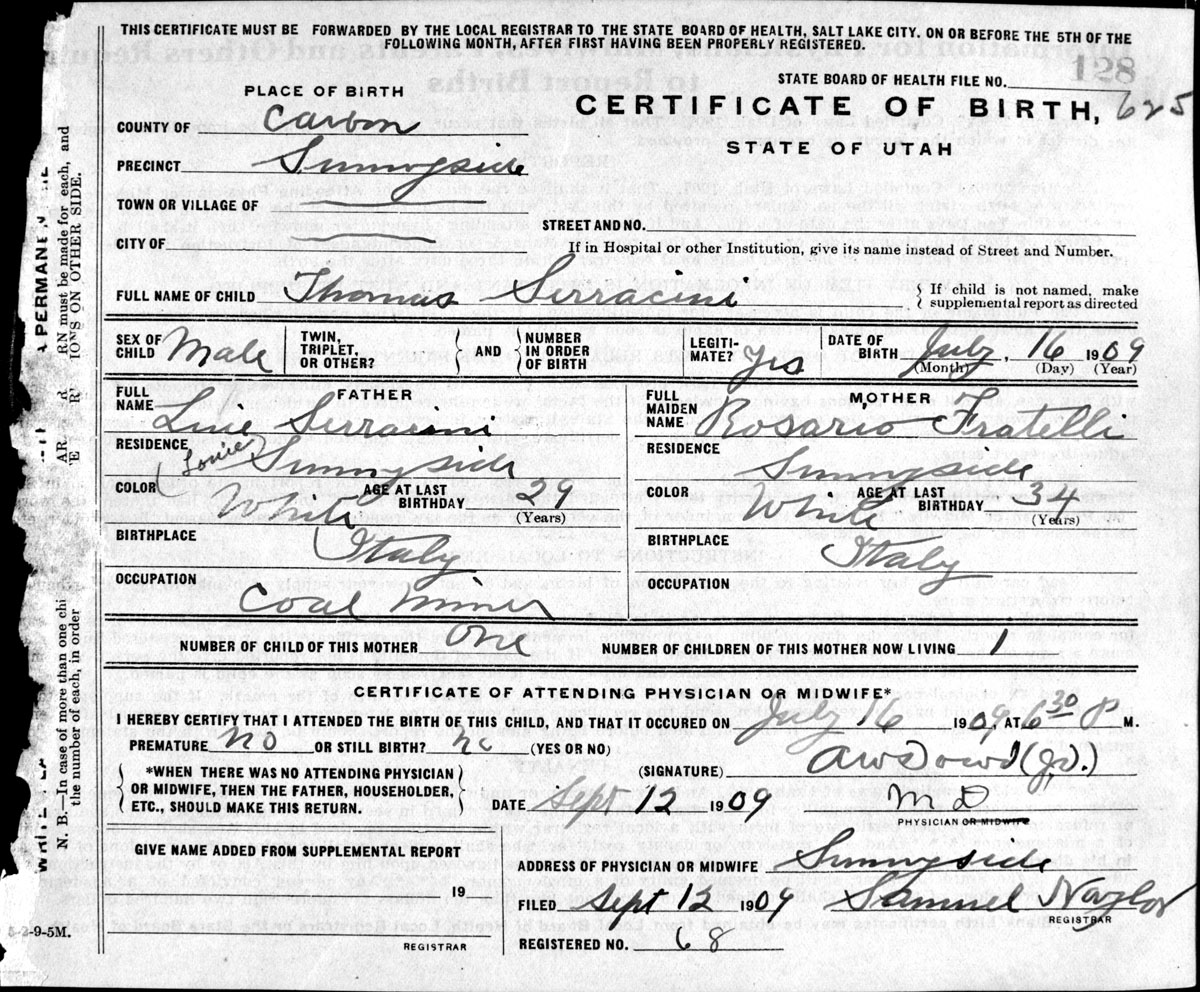 THIS CERTIFICATE MUST BE FORWARDED BY THE LOCAL REGISTRAR TO THE STATE BOARD OF HEALTH, SALT LAKE CITY. ON OR BEFORE THE 5TH OF THE
FOLLOWING MONTH, AFTER FIRST HAVING BEEN PROPERLY REGISTERED.
STATE BOARD OF HEALTH FILE NO. 128
PLACE OF BIRTH
CERTIFICATE OF BIRTH, 625
STATE OF UTAH
COUNTY OF Carbon
PRECINCT Sunnyside
TOWN OR VILLAGE OF
STREET AND NO.
CITY OF
If in Hospital or other Institution, give its name instead of Street and Number.
FULL NAME OF CHILD Thomas Serracini { If child is not named, make
supplemental report as directed
SEX OF CHILD Male TWIN, TRIPLET, OR OTHER? } AND { NUMBER IN ORDER OF BIRTH LEGITI-MATE? Yes DATE OF BIRTH July, 16 1909
(Month) (Day) (Year)
FATHER
FULL NAME Linie Serracini
RESIDENCE (Louie) Sunnyside
COLOR White AGE AT LAST BIRTHDAY 29
(Years)
BIRTHPLACE Italy
OCCUPATION
Coal miner
MOTHER
FULL MAIDEN NAME Rosario Fratelli
RESIDENCE
Sunnyside
COLOR White AGE AT LAST BIRTHDAY 34
(Years)
BIRTHPLACE Italy
OCCUPATION
NUMBER OF CHILD OF THIS MOTHER One NUMBER OF CHILDREN OF THIS MOTHER NOW LIVING 1
CERTIFICATE OF ATTENDING PHYSICIAN OR MIDWIFE*
I HEREBY CERTIFY THAT I ATTENDED THE BIRTH OF THIS CHILD, AND THAT IT OCCURED ON July 16 1909 AT 6 30 P M.
PREMATURE no OR STILL BIRTH? no (YES OR NO)
(SIGNATURE) AW Dowd (Jd.)
*WHEN THERE WAS NO ATTENDING PHYSICIAN
OR MIDWIFE, THEN THE FATHER, HOUSEHOLDER,
ETC., SHOULD MAKE THIS RETURN.
DATE Sept 12 1909 M D
PHYSICIAN OR MIDWIFE
GIVE NAME ADDED FROM SUPPLEMENTAL REPORT
19
REGISTRAR
ADDRESS OF PHYSICIAN OR MIDWIFE Sunnyside
FILED Sept 12 1909 Samuel Naylor
REGISTRAR
REGISTERED NO. 68
A PERMANEN
RN must be made for each, and
IONS ON OTHER SIDE.
N. B.—In case of more than one chi
the number of each, in order
5-2-9-5M.